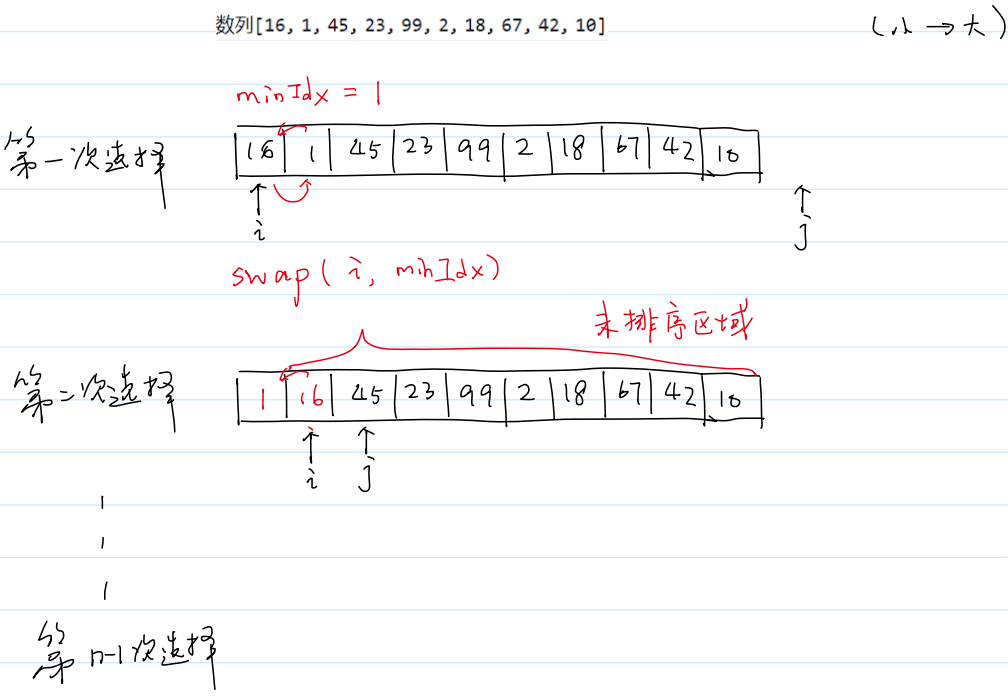 数列[16, 1, 45, 23, 99, 2, 18, 67, 42, 10]
(小→大)
minIdx = 1
第一次选择
16 1 45 23 99 2 18 67 42 10
i j
swap( i, minIdx)
未排序区域
第二次选择
1 16 45 23 99 2 18 67 42 10
i j
第 n-1次选择